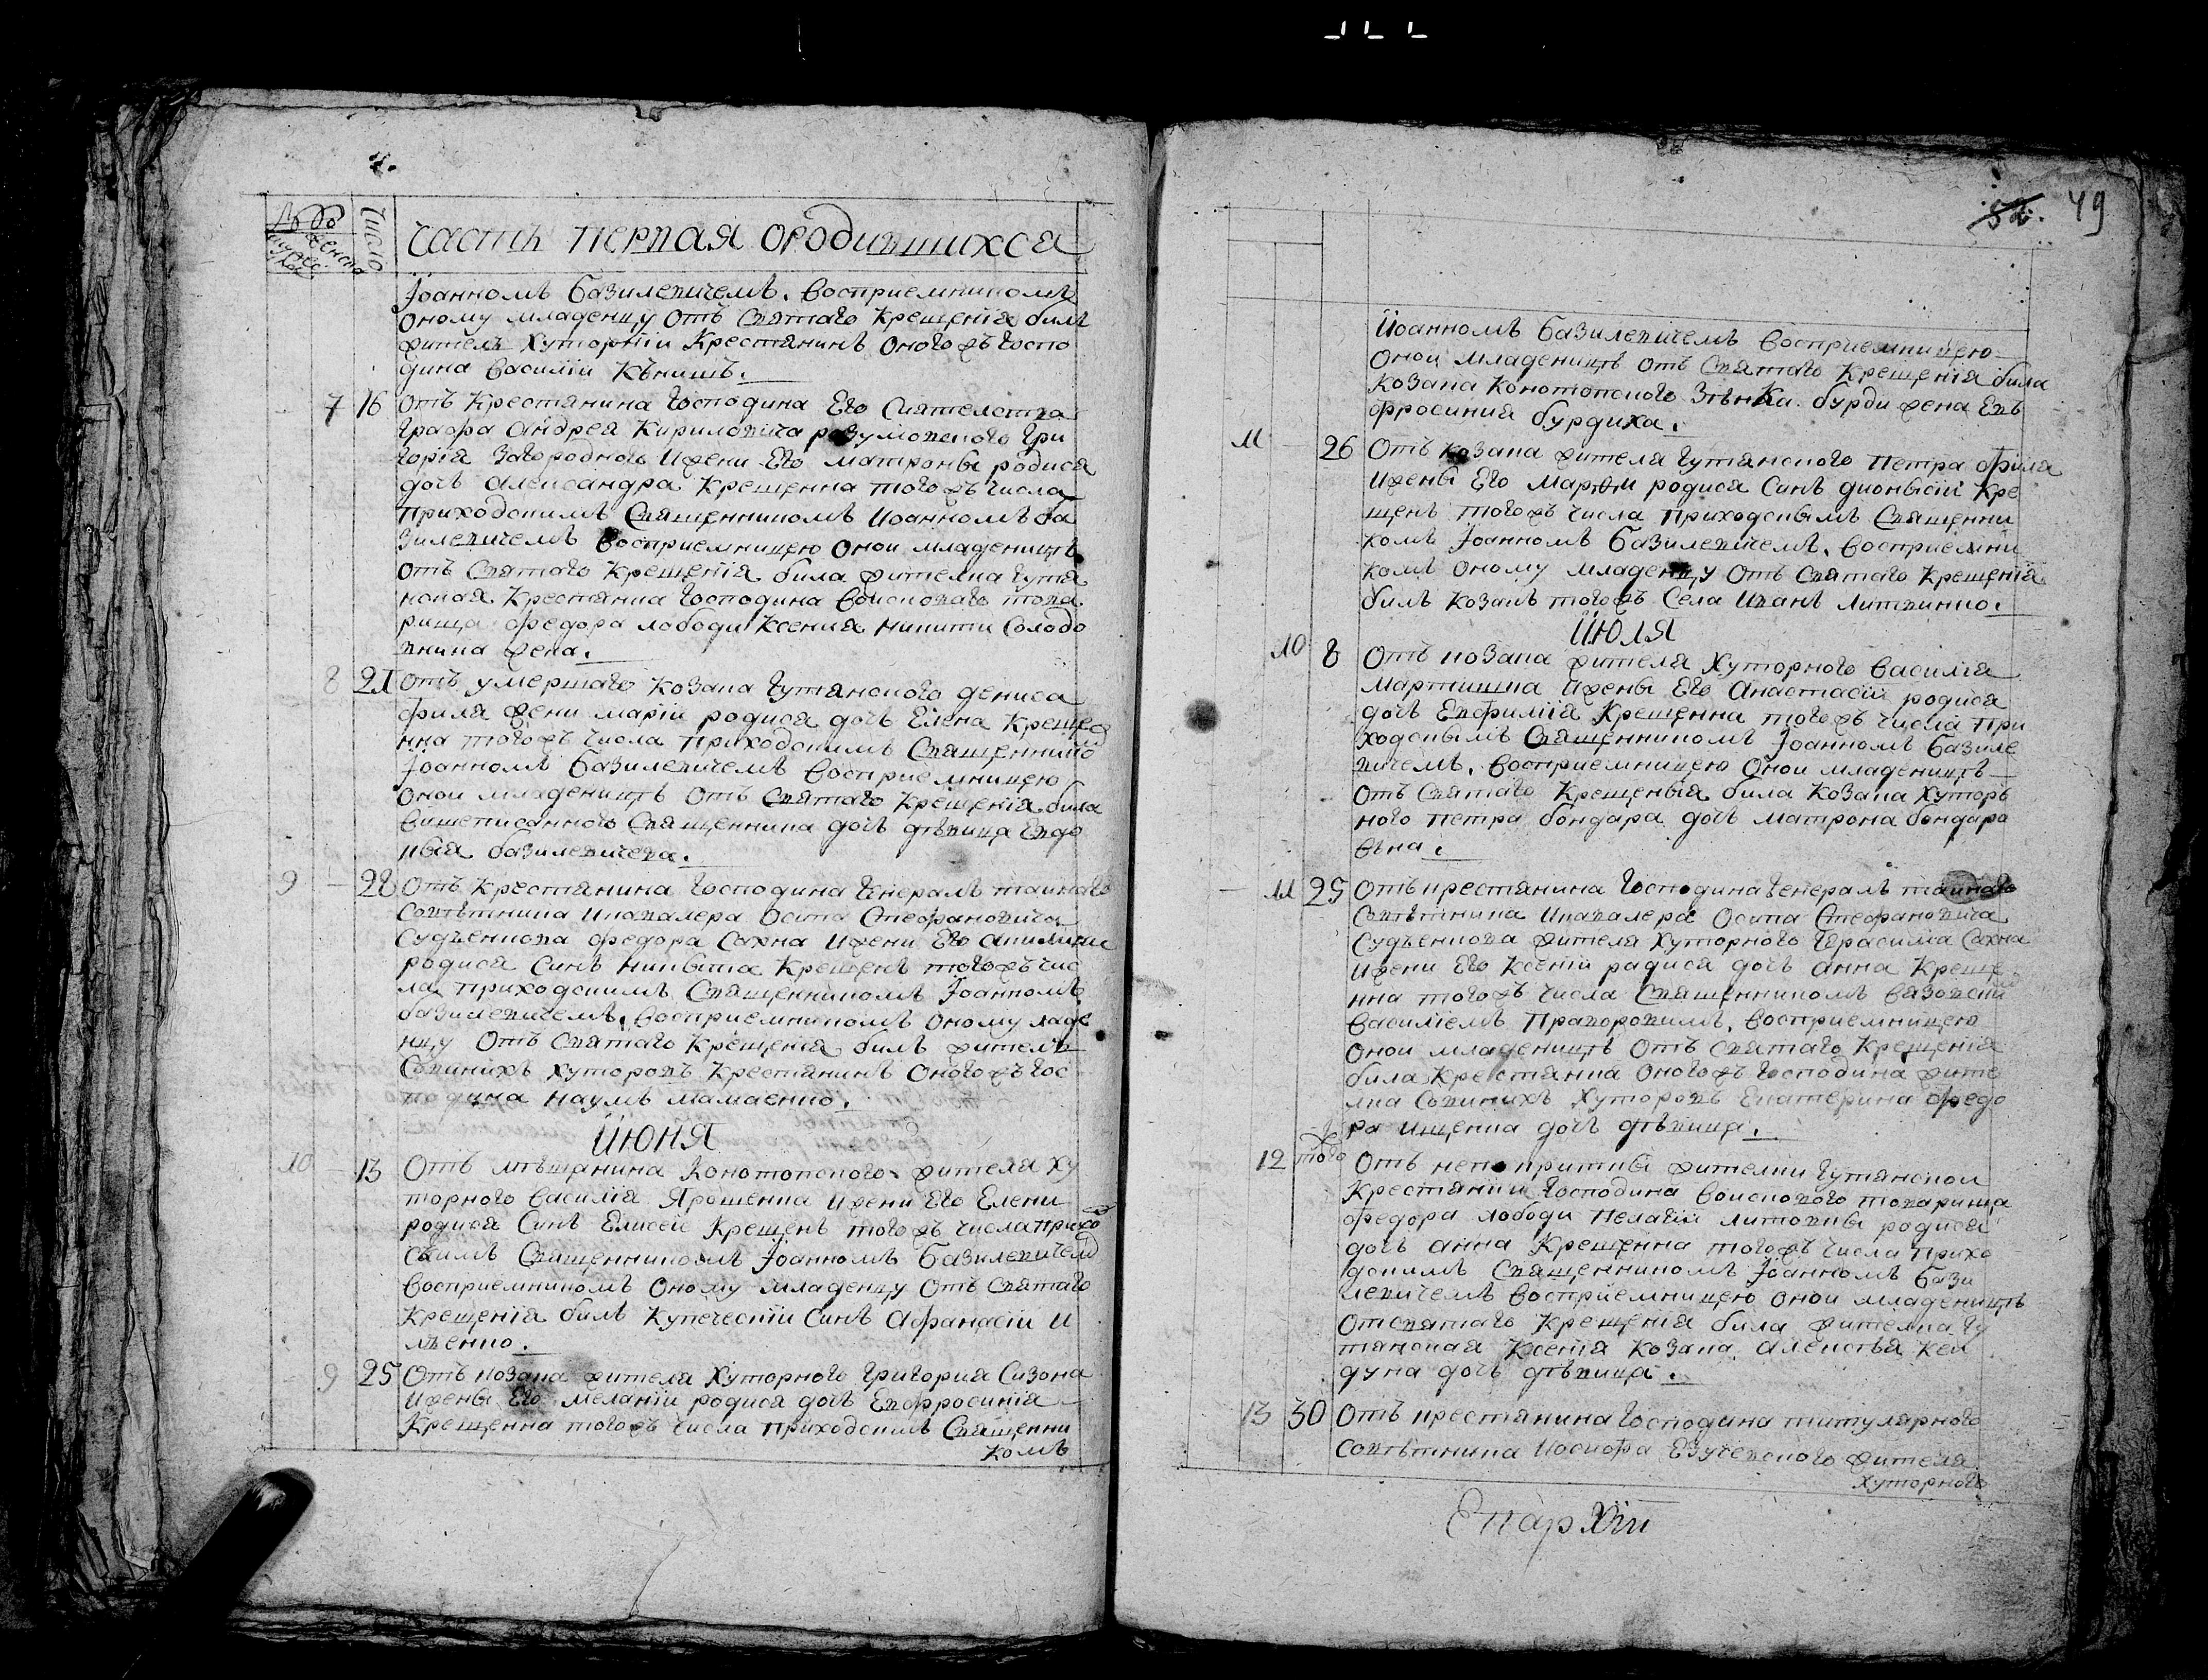 4.
№
Число
мужес
кого
женска
Часть первая ородившихся
Іоанномъ Базилевичемъ. Восприемникомъ
Оному младенцу Отъ Святаго Крещенія билъ
жителъ Хуторній Крестянинъ Оногожъ Госпо
дина Василій Кънишъ.
7 16 Отъ Крестянина Господина Его Сиятелства
Графа Андрея Кириловича разумовского Гри
горія Загородногъ Ижени Его Матроны родися
дочъ Александра Крещенна тогожъ числа
Приходскимъ Священникомъ Иоанномъ Ба
зилевичемъ Восприемницею Онои младеницѣ
отъ Святаго Крещенія била жителка Гутя
нская Крестянка Господина Воисковаго това
рища Федора лободи Ксения никити Солодо
вника жена.
8 21 Отъ умершаго Козака Гутянского дениса
филя жени маріи родися дочъ Елена Креще
нна тогожъ числа Приходскимъ Священнико
Іоанномъ Базилевичемъ Восприемницею
Онои младеницѣ Отъ Святаго Крещенія била
вишеписанного Священника дочъ дѣвица Евдо
кія базилевичева.
9 - 28 Отъ Крестянина Господина Генералъ таинаго
Совѣтника Икавалера Осипа Стефановича
Судъенкова Федора Сахна Ижени Его Акилини
родися Синъ Никыта Крещенъ тогожъ чис
ла Приходскимъ Священникомъ Іоанномъ
базилевичемъ. Восприемникомъ Оному младе
нцу Отъ Святаго Крещенія билъ жителъ
Савинихъ Хуторовъ Крестянинъ Оногожъ Гос
подина Наумъ Мамаенко.
Июня
10 - 13 Отъ мѣщанина Конотопского жителя Ху
торного Василія Ярошенка Ижени Его Елени
родися Синъ Елисей Крещенъ тогожъ числа прихо
скимъ Священникомъ Іоанномъ Базилевичем
Восприемникомъ Оному младенцу Отъ Святаго
Крещенія билъ Купеческій Синъ Афанасіи И
лъенко.
- 9 25 Отъ козака жителя Хуторного Григория Сизона
Ижены Его Меланіи родися дочъ Евфросинія
Крещенна тогожъ числа Приходскимъ Священни
комъ
52. 49
Иоанномъ Базилевичемъ Восприемницею
Онои младеницѣ отъ Святаго Крещенія била
Козака Конотопского Зѣнка бурди жена Евъ
фросиния бурдиха.
11 - 26 Отъ козака жителя Гутянского Петра филя
Ижены Его Марфи родися Синъ дионысій Кре
щенъ тогожъ числа Приходскымъ Священни
комъ Іоанномъ Базилевичемъ. Восприемни
комъ Оному младенцу Отъ Святаго Крещенія
билъ козакъ тогожъ Села Иванъ Литвинко.
Июля
10 8 Отъ козака жителя Хуторного Василія
Мартишка Ижены Его Анастасіи родися
дочъ Евфимія Крещенна тогожъ числа При
ходскымъ Священникомъ Іоанномъ Базиле
вичемъ. Восприемницею Онои младеницѣ
отъ Святаго Крещеныя била козака Хуторъ
ного Петра бондара дочъ матрона бондаро
въна.
- 11 25 Отъ крестянина Господина Генералъ таинаго
Совѣтника Икавалера Осипа Стефановича
Судъенкова жителя Хуторного Герасима Сахна
Ижени Его Ксеніи радися дочъ Анна Креще
нна тогожъ числа Священникомъ вязовски
Василіемъ Прапоровимъ. Восприемницею
Онои младеницѣ Отъ Святаго Крещенія
била Крестянка Оногожъ Господина жите
лка Савинихъ Хуторовъ Екатерина Федо
ра Ищенка дочъ дѣвица.
12 тогож Отъ непокритки жителки Гутянскои
Крестянки Господина Воискового товарища
Федора Лободи Пелагіи Литовки родися
дочъ Анна Крещенна тогожъ числа Прихо
дскимъ Священникомъ Іоанномъ Бази
левичемъ Восприемницею Онои младеницѣ
Отсвятаго Крещенія била жителка Гу
тянская Ксенія козака Алексѣя Кеи
дуна дочъ дѣвица.
13 30 Отъ крестянина Господина титулярного
Совѣтника Иосифа Езучевского жителя
Хуторного
Епархіи